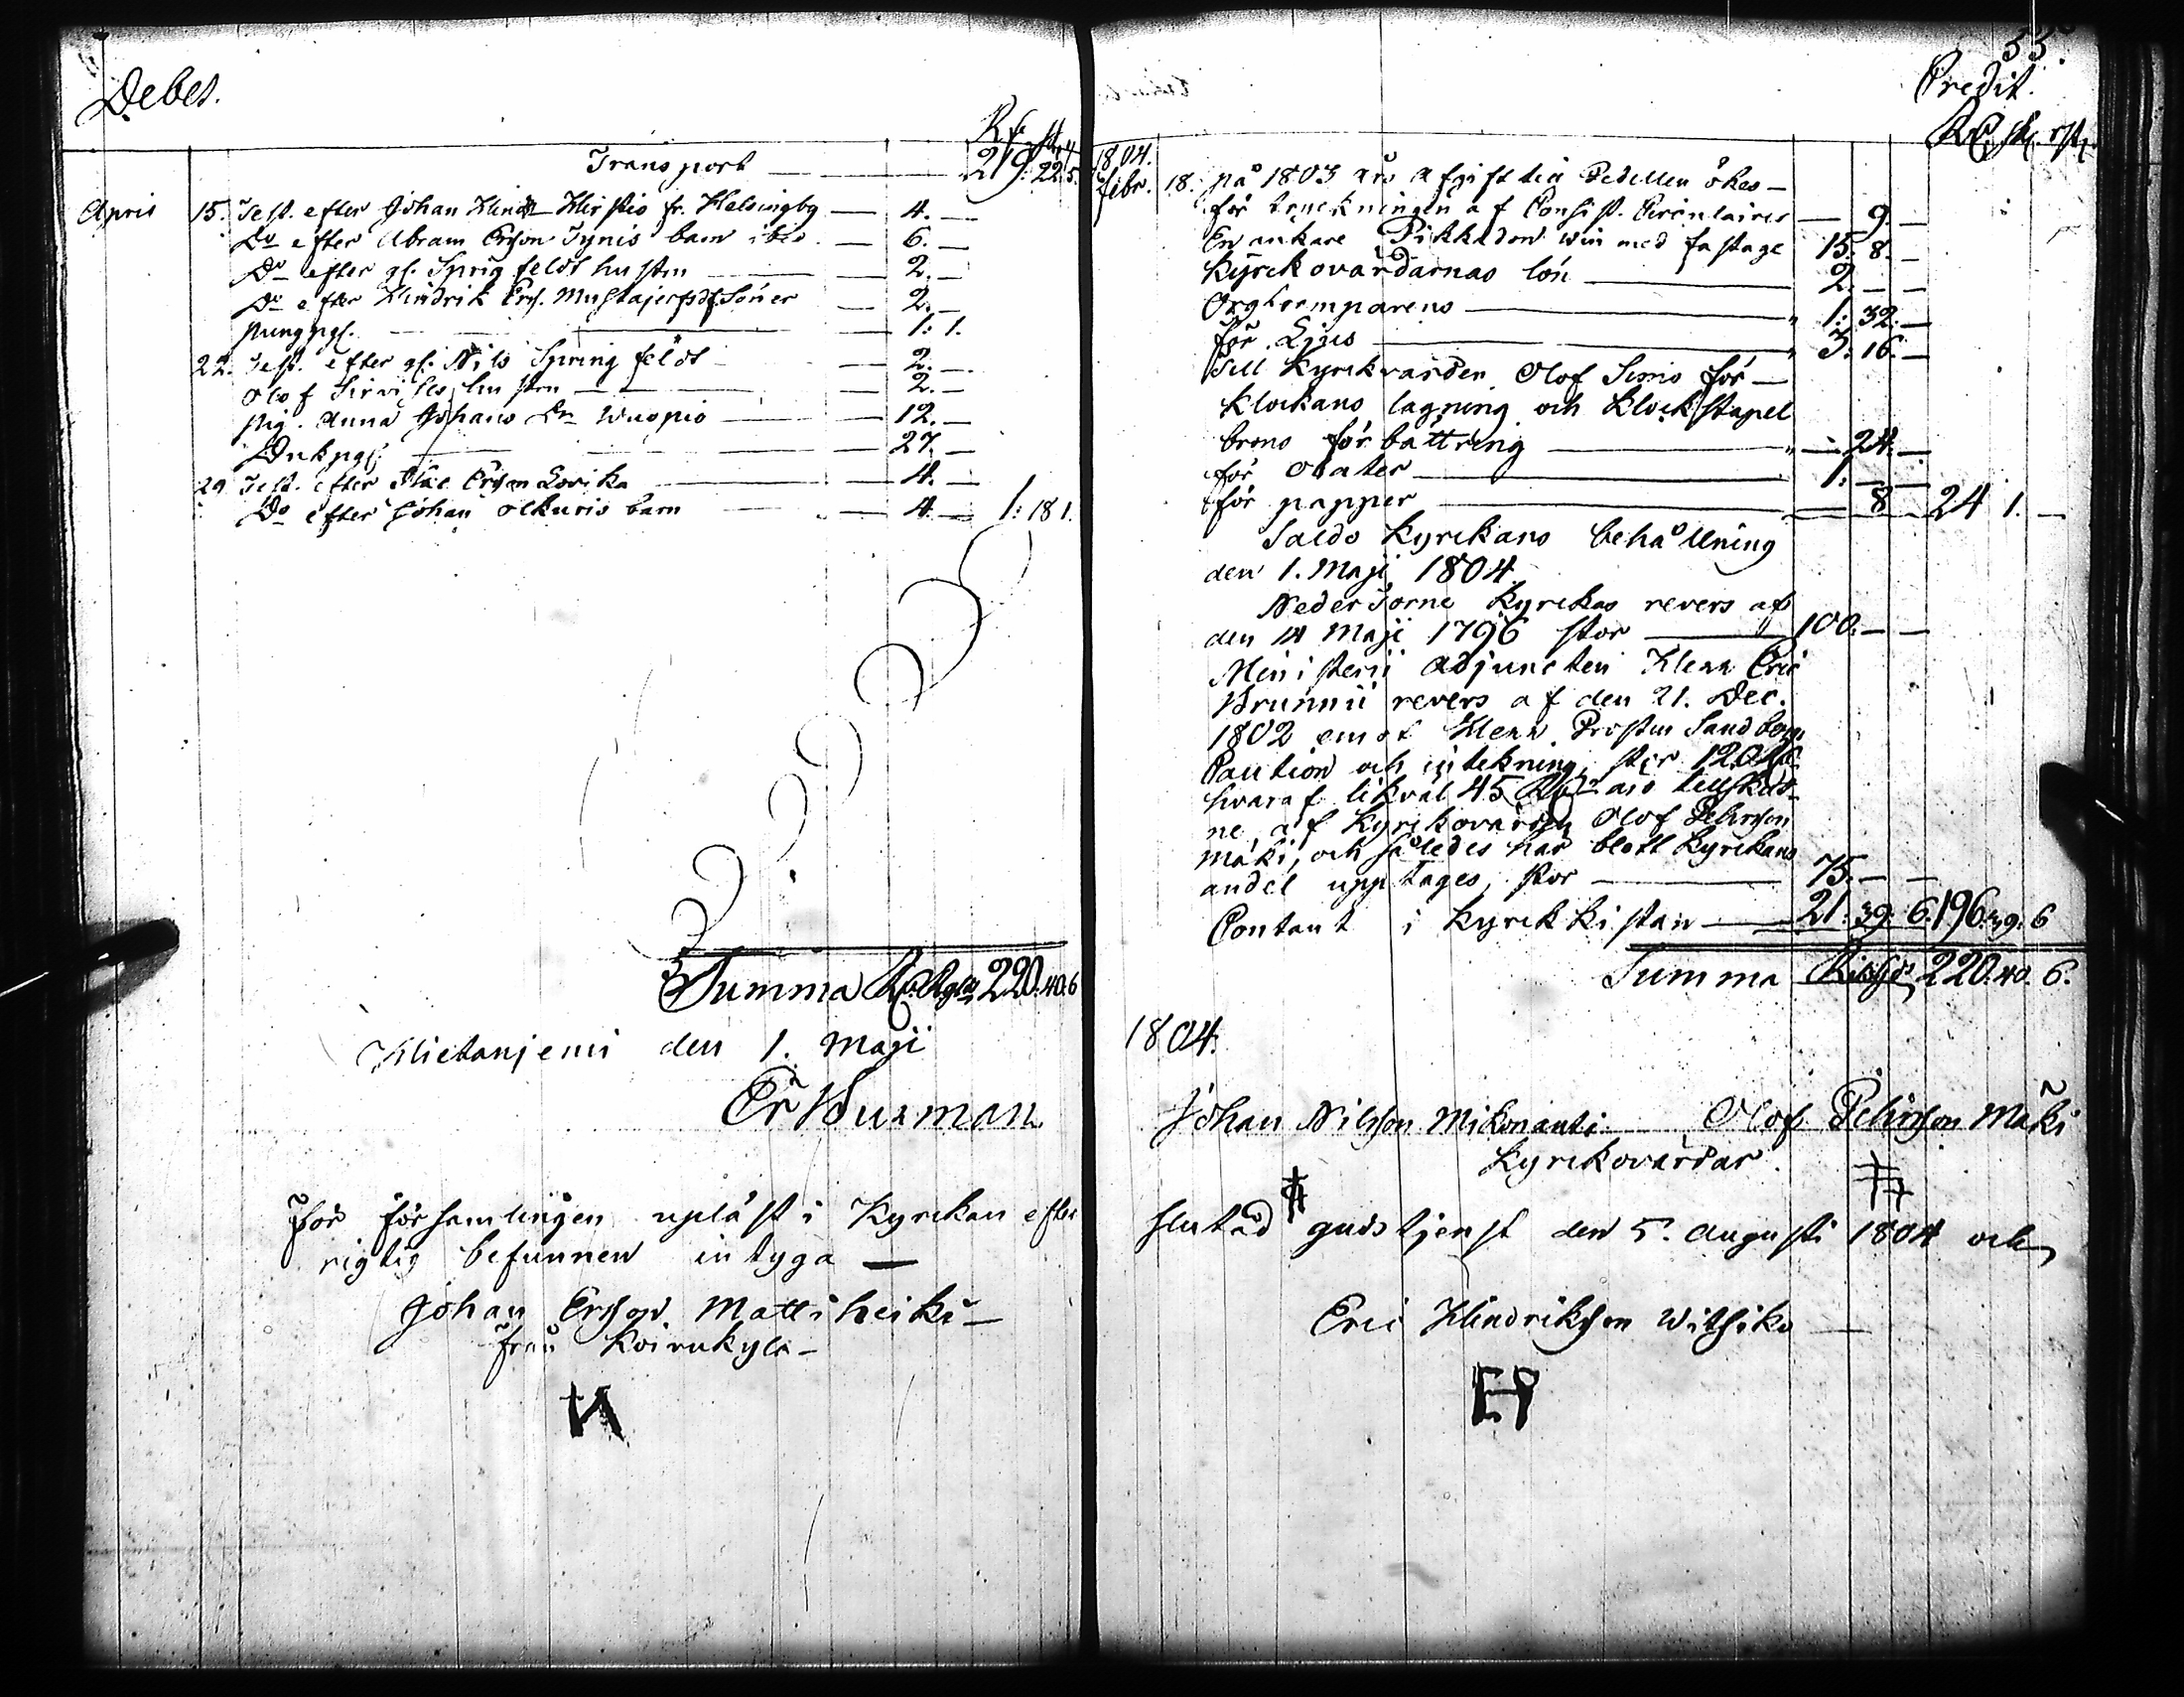 Debet.
Transport 219. 22. 5.
April 15. Test. efter Johan Hind Hirstio fr. Helsingbg 4. —
Do efter Abram Ersson Tynis barn ibid. 6. —
Do efter gl. Spring feldt hustru 2. —
Do efter Hindrik Ers. 2. —
pungpgr. 1: 1.
22. Test. efter gl. Nils Spring feldt 2. —
Olof hustru 2. —
pig. Anna Johans Dr Wuopio 12. —
Dukpgr. 27. —
29 Test. efter Ersson Lovika 4. —
Do efter Johan Olkuris barn 4. — 1: 18 1.
Summa 220. 40. 6
Hietanjemi den 1. Maji
Er Burman
För församlingen upläst i Kyrckan efter
rigtig befunnen intyga —
Johan Ersson Mattiheiki —
från Koirukyla —
33.
Credit.
1804.
Febr. 18. på 1803 års afgiften Pedellen ökes —
för tryckningen af Consist. Circulairer — 9. —
En ankare Pikkadon win med fastage 15. 8. —
Kyrckovärdarnas lön 2. — —
Orgltramparens 1: 32. —
för Ljus 3: 16. —
Till Kyrckvärden Olof Simo för —
Klockans lagning och Klockstapel
brons förbättring — 24. —
för oblater 1. — —
för papper 8 24 1. —
Saldo Kyrckans behållning
den 1. Maji 1804.
Neder Torne Kyrckas revers af
den 14 Maji 1796 stor 100. — —
Ministerii Adjuncten Herr Eric
Brunnii revers af den 21. Dec.
1802 emot Herr Prosten Sandberg
Caution och inteckning, stor 120
hvaraf likväl 45 äro tillskut-
ne af Kyrckovärden Olof Pehrsson
Mäki, och således här blott Kyrckans
andel upptages, stor 75. — —
Contant i Kyrckkistan 21. 39. 6. 196. 39. 6
Summa 220. 40. 6.
1804.
Johan Nilsson Mikonanti Olof Pehrsson Mäki
Kyrckovärdar.
slutad gudstjenst den 5. Augusti 1804 och
Eric Hindriksson Witsiko —
EH